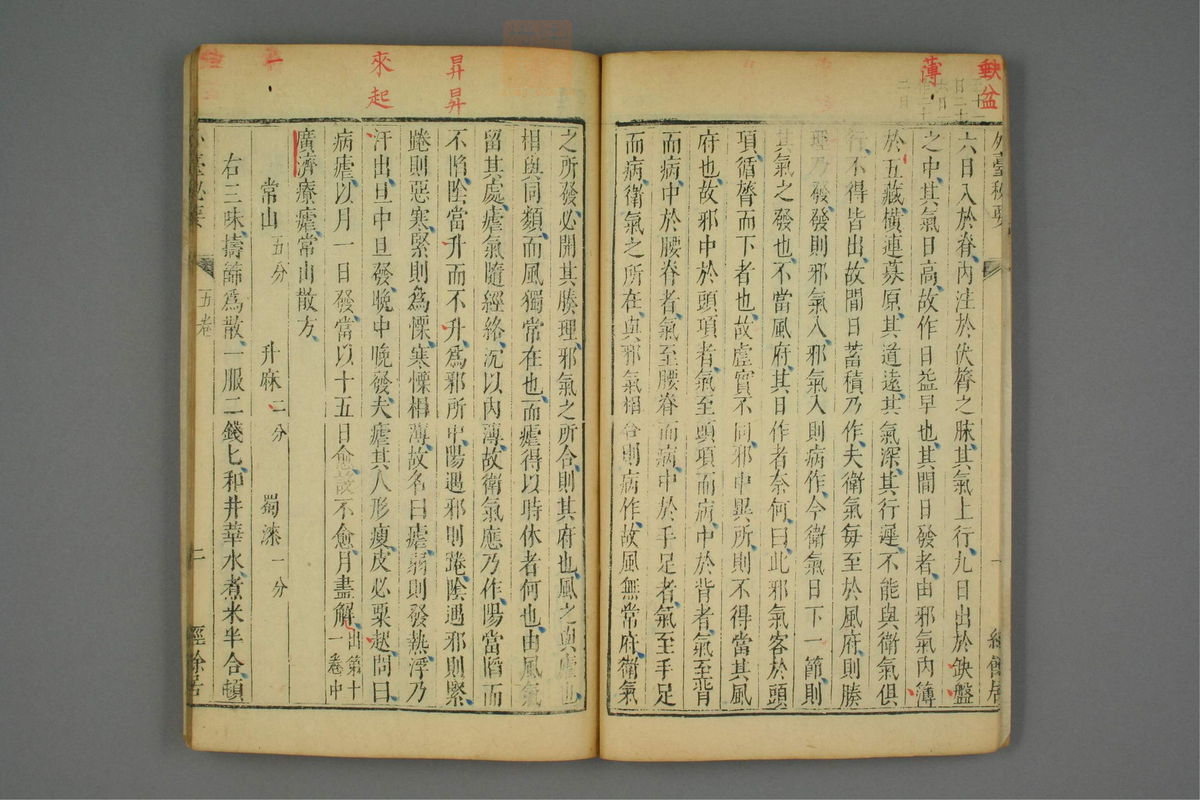 缺盆
薄
外臺秘要
一
經餘居
六日入於脊內注於伏膂之脉其氣上行九日出於缺盤
之中其氣日高故作日益早也其間日發者由邪氣內簿
於五藏橫連募原其道遠其氣深其行遲不能與衛氣俱
行不得皆出故間日蓄積乃作夫衛氣每至於風府則腠
理乃發發則邪氣入邪氣入則病作今衛氣日下一節則
其氣之發也不當風府其日作者奈何曰此邪氣客於頭
項循膂而下者也故虛實不同邪中異所則不得當其風
府也故邪中於頭項者氣至頭項而病中於背者氣至背
而病中於腰脊者氣至腰脊而病中於手足者氣至手足
而病衛氣之所在與邪氣相合則病作故風無常府衛氣
昇昇
來起
之所發必開其腠理邪氣之所合則其府也風之與瘧也
相與同類而風獨常在也而瘧得以時休者何也由風氣
留其處瘧氣隨經絡沉以內薄故衛氣應乃作陽當㬱而
不陷陰當升而不升為邪所中陽遇邪則踡陰遇邪則緊
踡則惡寒緊則為慄寒慄相薄故名曰瘧弱則發熱浮乃
汗出旦中旦發晚中晚發夫瘧其人形瘦皮必粟趂問曰
病瘧以月一日發當以十五日愈設不愈月盡解出第十一卷中
廣濟療瘧常山散方
常山五分 升麻二分 蜀漆一分
右三味擣篩為散一服二錢匕和井華水煮米半合頓
外臺秘要
五卷
二
經餘居